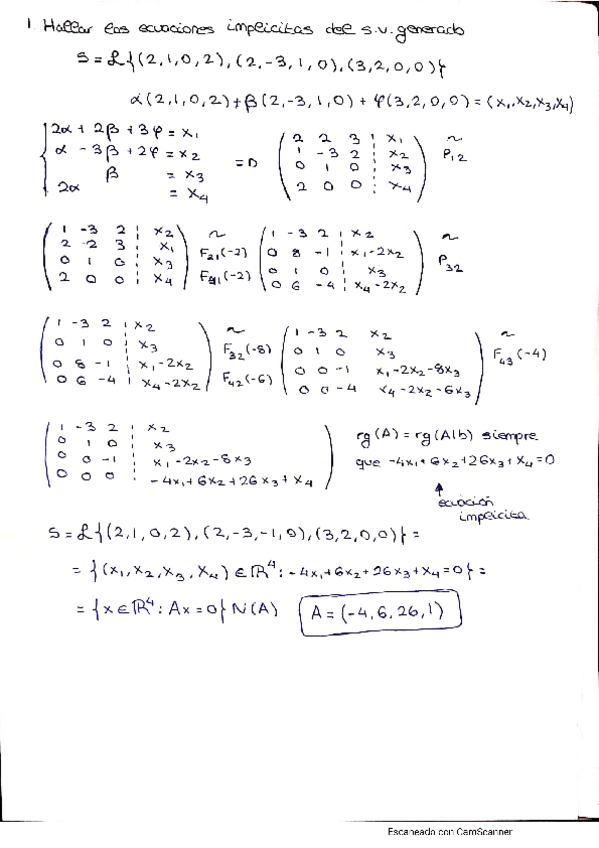 1. Hallar las ecuaciones implícitas del s.v. generado
S = L{(2,1,0,2), (2,-3,1,0), (3,2,0,0)}
α(2,1,0,2)+β(2,-3,1,0) + φ(3,2,0,0) = (x₁,x₂,x₃,x₄)
2α + 2β + 3φ = x₁
α - 3β + 2φ = x₂
β = x₃
2α = x₄
⇒
2 2 3 ¦ x₁
1 -3 2 ¦ x₂
0 1 0 ¦ x₃
2 0 0 ¦ x₄
~ P₁₂
1 -3 2 ¦ x₂
2 2 3 ¦ x₁
0 1 0 ¦ x₃
2 0 0 ¦ x₄
~ F₂₁(-2)
F₄₁(-2)
1 -3 2 ¦ x₂
0 8 -1 ¦ x₁-2x₂
0 1 0 ¦ x₃
0 6 -4 ¦ x₄-2x₂
~ P₃₂
1 -3 2 ¦ x₂
0 1 0 ¦ x₃
0 8 -1 ¦ x₁-2x₂
0 6 -4 ¦ x₄-2x₂
~ F₃₂(-8)
F₄₂(-6)
1 -3 2 x₂
0 1 0 x₃
0 0 -1 x₁-2x₂-8x₃
0 0 -4 x₄-2x₂-6x₃
~ F₄₃(-4)
1 -3 2 ¦ x₂
0 1 0 ¦ x₃
0 0 -1 ¦ x₁-2x₂-8x₃
0 0 0 ¦ -4x₁+6x₂+26x₃+x₄
rg(A) = rg(A|b) siempre
que -4x₁+6x₂+26x₃+x₄=0
↑
ecuación
implícita
S = L{(2,1,0,2), (2,-3,-1,0), (3,2,0,0)} =
= {(x₁,x₂,x₃,x₄) ∈ ℝ⁴ : -4x₁+6x₂+26x₃+x₄=0} =
= {x ∈ ℝ⁴ : Ax = 0} N(A) A = (-4,6,26,1)
Escaneado con CamScanner